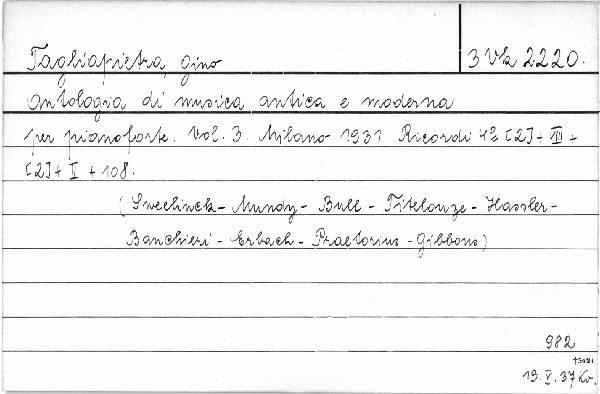 Tagliapietra, Gino
3 Vk 2220.
Antologia di musica antica e moderna
per pianoforte. Vol. 3. Milano 1931 Ricordi 4º [2] + III +
[2] + II + 108.
(Swelinck - Mundy - Bull - Titelouze - Hassler -
Banchieri - Erbach - Praetorius - Gibbons)
982
+3421
19. V. 37 Kv.